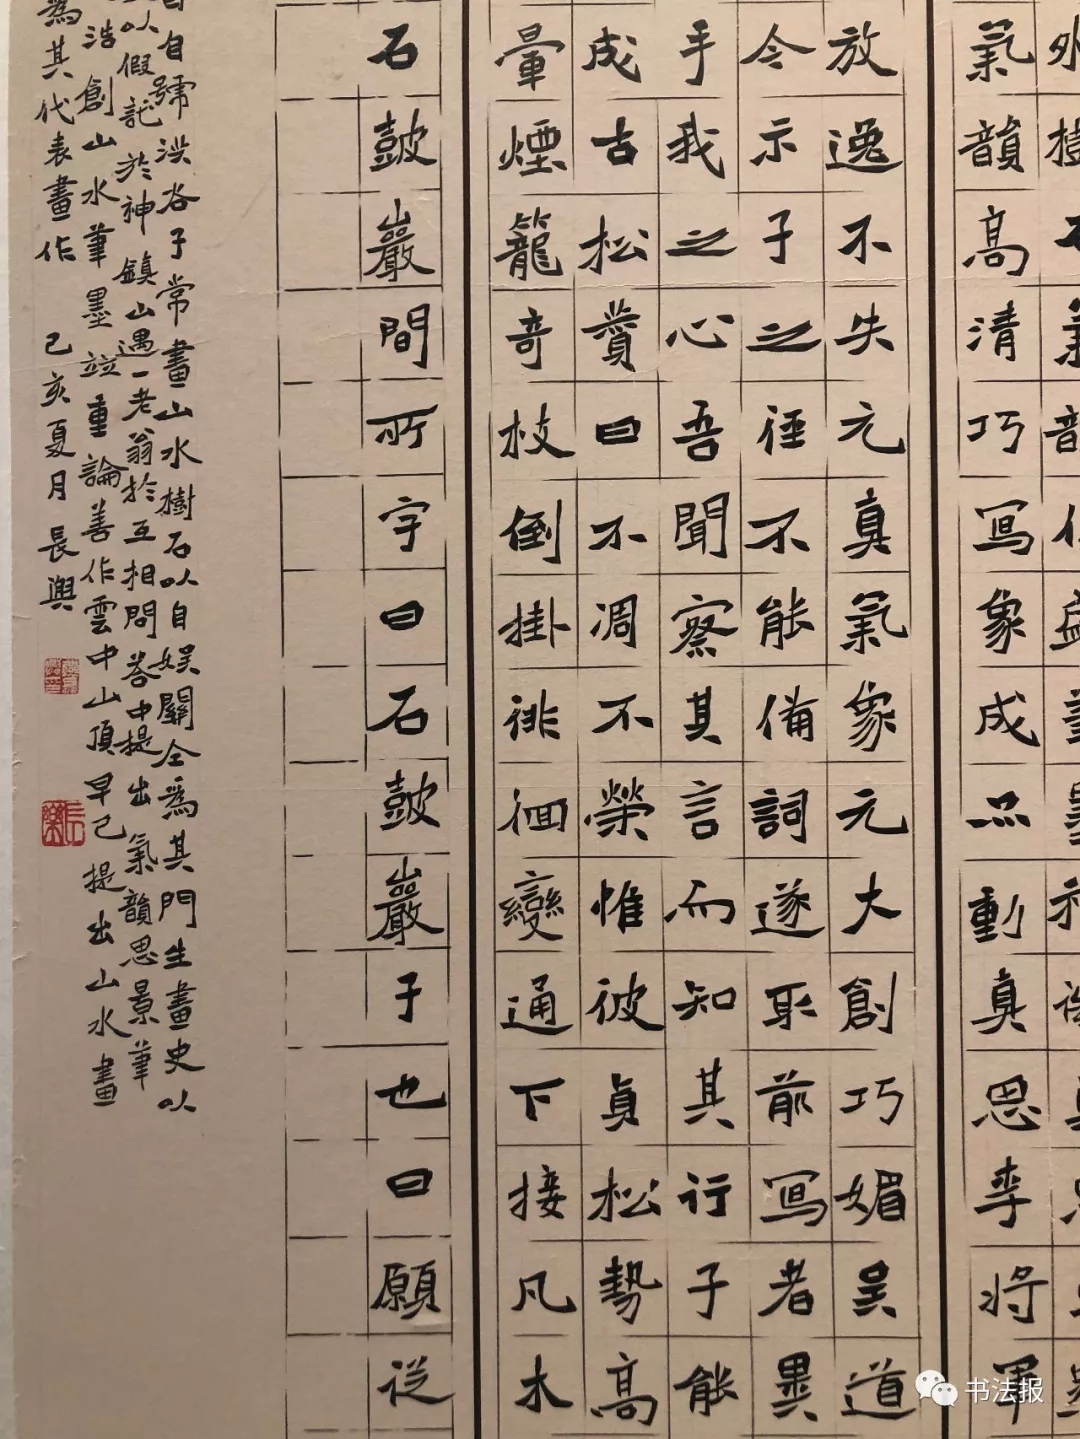 氣韻高清巧写象成品動真思李將軍
放逸不失元真氣象元大創巧媚吴道
今示子之徑不能備詞遂取前写者異
手我之心吾聞察其言而知其行子能
成古松賛曰不凋不榮惟彼貞松勢高
暈煙籠奇枝倒掛徘徊變通下接凡木
石鼓巖間所字曰石鼓巖子也曰願從
自號洪谷子常畫山水樹石以自娱關仝為其門生畫史以
以假託於神鎮山遇一老翁於互相問答中提出氣韻思景筆
浩創山水筆墨竝重論善作雲中山頂早已提出山水畫
為其代表畫作 己亥夏月長興
书法报